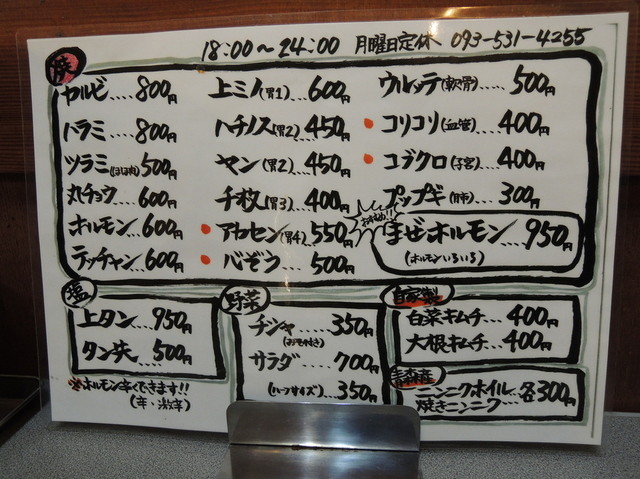 18:00～24:00 月曜日定休 093-531-4255
焼
カルビ....800円
ハラミ....800円
ツラミ(ほほ肉)500円
丸チョウ...600円
ホルモン...600円
テッチャン...600円
上ミノ(胃1)...600円
ハチノス(胃2)...450円
ヤン(胃2)...450円
千枚(胃3)...400円
アカセン(胃4)550円
バぞう...500円
ウルッテ(軟骨)...500円
コリコリ(血管)...400円
コブクロ(子宮)...400円
プップギ(肺)...300円
おすすめ!!
まぜホルモン...950円
(ホルモンいろいろ)
塩
上タン...950円
タン先...500円
※ホルモン辛くできます!!
(辛・激辛)
野菜
チシャ.....350円
サラダ....700円
(ハーフサイズ)...350円
自家製
白菜キムチ...400円
大根キムチ...400円
青森産
ニンニクホイル...各300円
焼きニンニク...